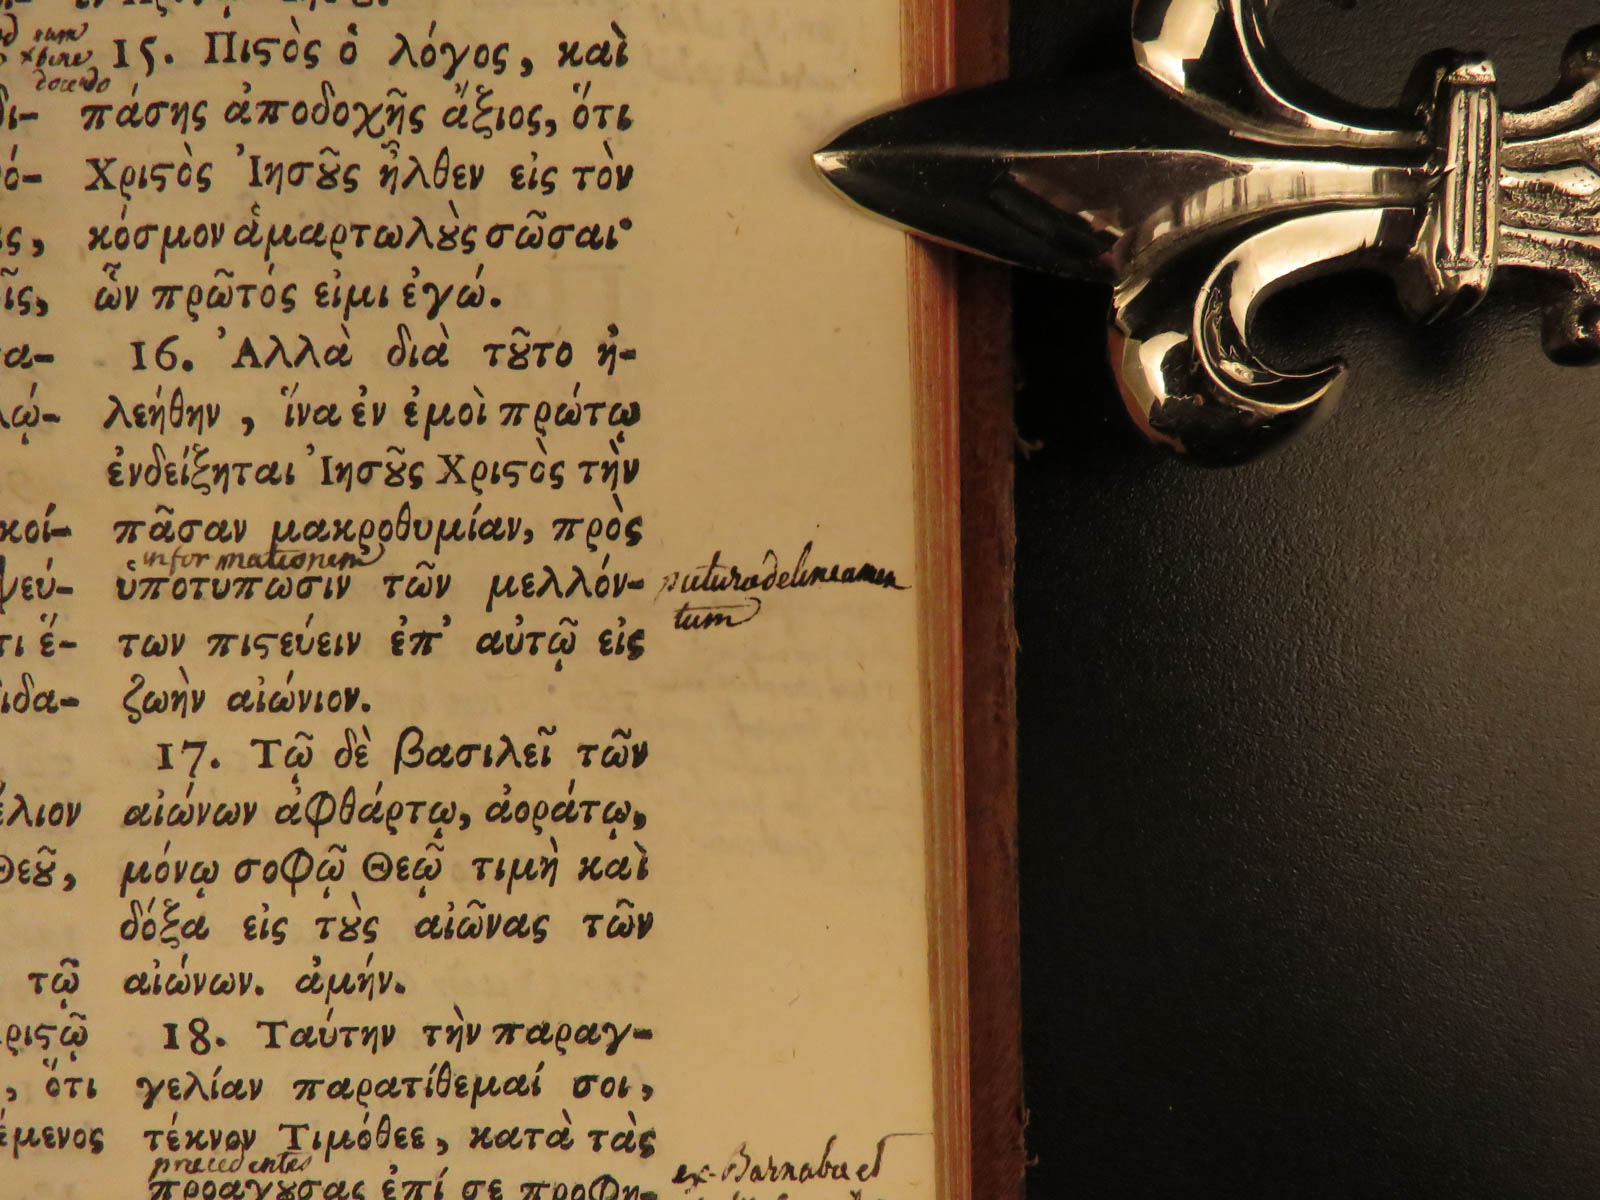 sum
docendo
15. Πιϛὸς ὁ λόγος, καὶ
δι- πάσης ἀποδοχῆς ἄξιος, ὅτι
Χριϛὸς Ἰησȣ͂ς ἦλθεν εἰς τὸν
κόσμον ἁμαρτωλȣ̀ς σῶσαι·
ὧν πρῶτός εἰμι ἐγώ.
16. Ἀλλὰ διὰ τȣ͂το ἠ-
λεήθην, ἵνα ἐν ἐμοὶ πρώτῳ
ἐνδείξηται Ἰησȣ͂ς Χριϛὸς τὴν
κοί- πᾶσαν μακροθυμίαν, πρὸς
informationem
ψεύ- ὑποτύπωσιν τῶν μελλόν- delineamen
tum
τι ἕ- των πιϛεύειν ἐπ' αὐτῷ εἰς
ιδα- ζωὴν αἰώνιον.
17. Τῷ δὲ βασιλεῖ τῶν
έλιον αἰώνων ἀφθάρτῳ, ἀοράτῳ,
Θεȣ͂, μόνῳ σοφῷ Θεῷ τιμὴ καὶ
δόξα εἰς τȣ̀ς αἰῶνας τῶν
τῷ αἰώνων. ἀμήν.
ριϛῷ 18. Ταύτην τὴν παραγ-
, ὅτι γελίαν παρατίθεμαί σοι,
έμενος τέκνον Τιμόθεε, κατὰ τὰς
precedentes
προαγȣ́σας ἐπί σε προφη- ex Barnaba et